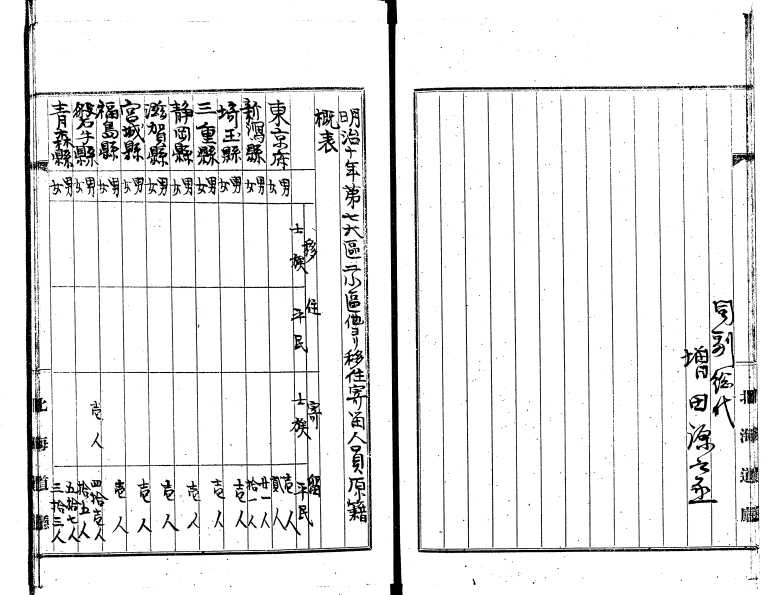 同副総代
増田源之丞
北海道廳
明治十年第七大區二小區他ヨリ移住寄留人員原籍
概表
移住 寄留
士族 平民 士族 平民
東京府 男 女
新潟縣 男 女
埼玉縣 男 女
三重縣 男 女
静岡縣 男 女
滋賀縣 男 女
宮城縣 男 女
福島縣 男 女
磐手縣 男 女
青森縣 男 女
壱人
貳人
廿一人
拾一人
壱人
壱人
壱人
壱人
壱人
壱人
壱人
壱人
四拾壱人
拾五人
五拾七人
三拾三人
北海道廳